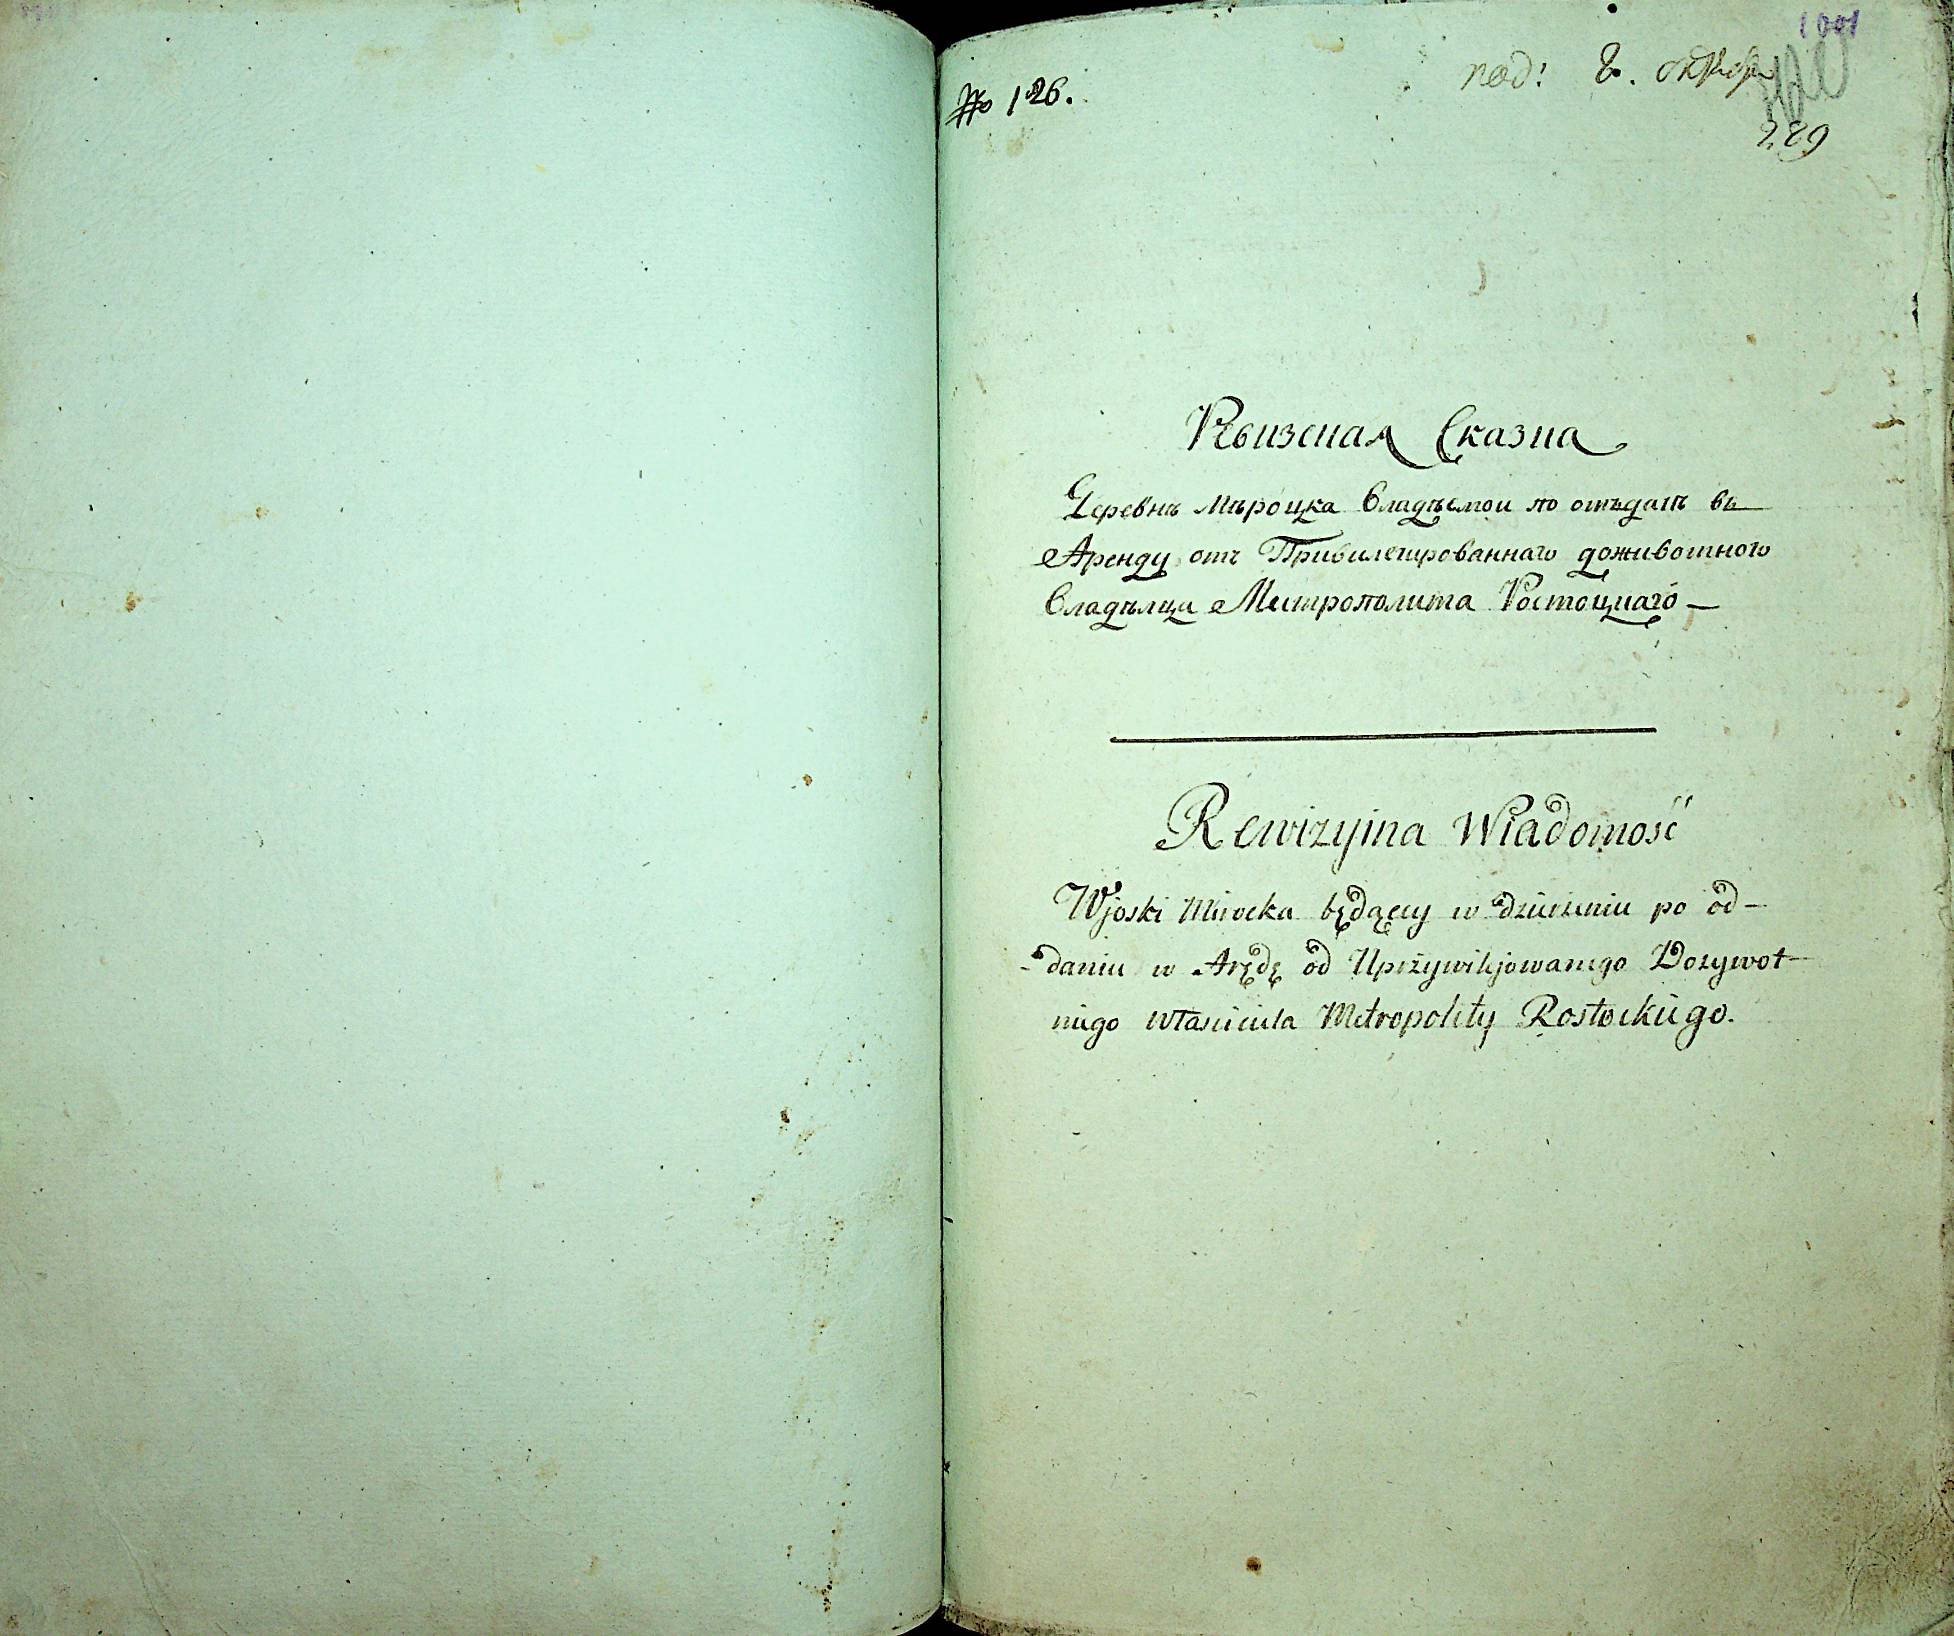 1001
№ 126.
под: 8. октяб
289
Ревизская Сказка
Деревнъ Мъроцка владъемои по отъдатъ въ
Аренду отъ Привилегированнаго доживотного
владълца Митрополита Ростоцкаго —
Rewizyina Wiadomość
Wjoski Mirocka będącey w dzierżeniu po od-
-daniu w Arędę od Uprzywilejowanego Dozywot-
niego własciciela Metropolity Rostockiego.